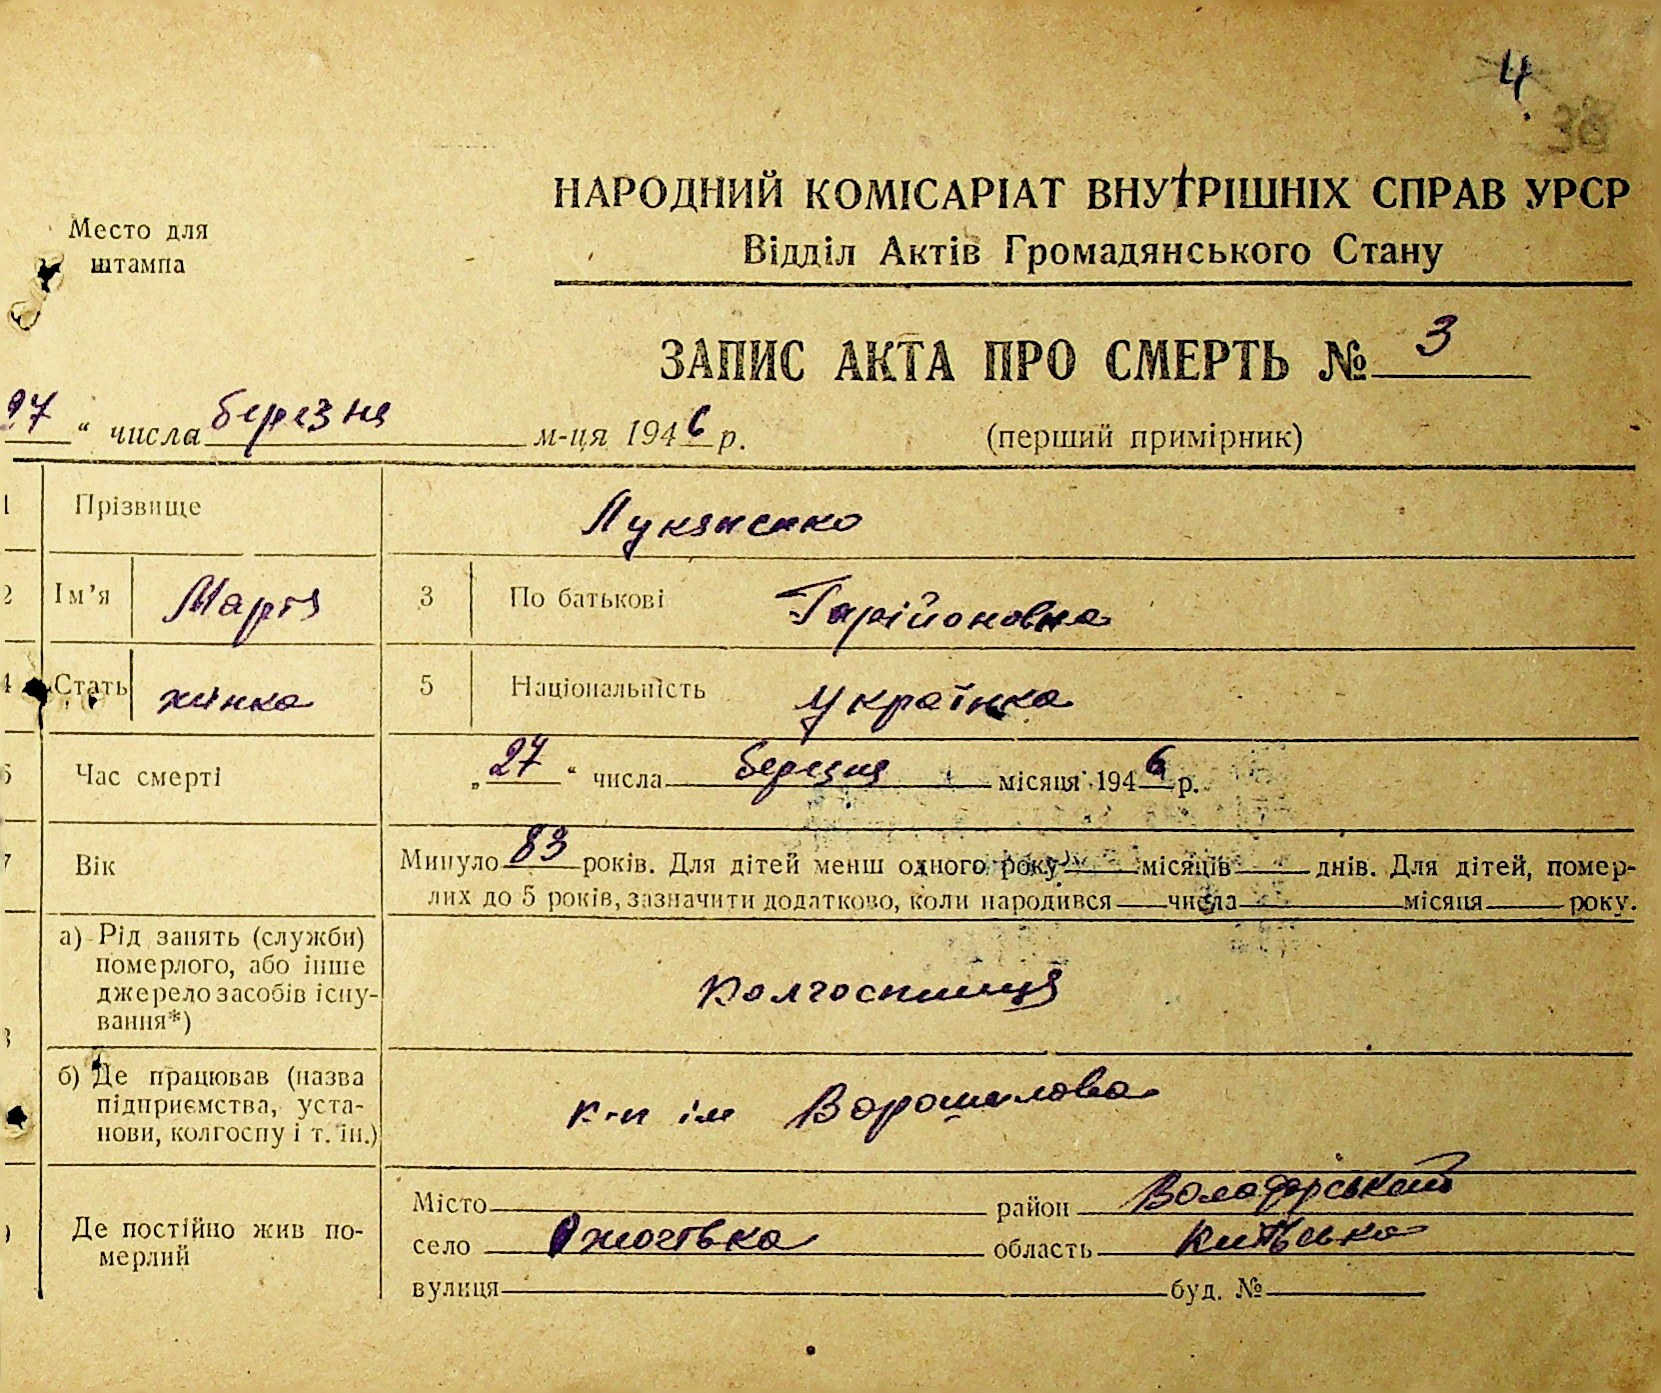 4
38
Место для
штампа
НАРОДНИЙ КОМІСАРІАТ ВНУТРІШНІХ СПРАВ УРСР
Відділ Актів Громадянського Стану
ЗАПИС АКТА ПРО СМЕРТЬ № 3
27 " числа березня м-ця 1946 р. (перший примірник)
1 Прізвище Лукяненко
2 Ім'я Марта 3 По батькові
4 Стать жінка 5 Національність Українка
6 Час смерті „ 27 " числа березня місяця 1946 р.
7 Вік Минуло 83 років. Для дітей менш одного року місяців днів. Для дітей, помер-
лих до 5 років, зазначити додатково, коли народився числа місяця року.
8 а) Рід занять (служби)
померлого, або інше
джерело засобів існу-
вання*) Колгоспниця
б) Де працював (назва
підприємства, уста-
нови, колгоспу і т. ін.) к-п ім Ворошилова
9 Де постійно жив по-
мерлий
Місто район Володарський
село область Київська
вулиця буд. №